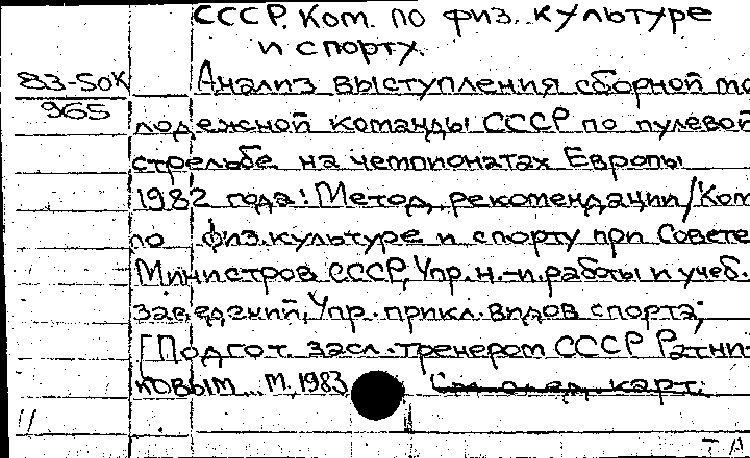 СССР. Ком. по физ. культуре
и спорту.
83-50К
965
Анализ выступления сборной мо
лодежной команды СССР по пулевой
стрельбе на чемпионатах Европы
1982 года: Метод. рекомендации/Ком
по физ.культуре и спорту при Совете
Министров СССР, Упр. н.-и. работы и учеб.
заведений, Упр. прикл. видов спорта;
[Подгот. засл. тренером СССР Ратни-
ковым ... М., 1983
См. след. карт.